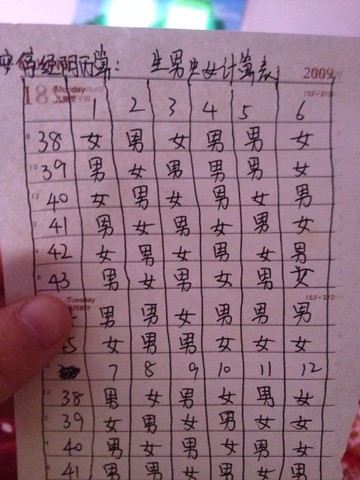 停经阴历算： 生男生女计算表 2009
18 Monday
1 2 3 4 5 6
38 女 男 女 男 男 女
39 男 女 男 男 男 女
40 女 男 女 男 女 男
41 男 女 男 女 男 女
42 女 男 女 男 女 男
43 男 女 男 女 男 女
Tuesday
男 男 女 男 男 男
女 男 男 女 女 女
7 8 9 10 11 12
38 男 女 男 女 男 女
39 女 男 女 男 女 女
40 男 女 男 男 女 男
41 男 男 女 男 女 男